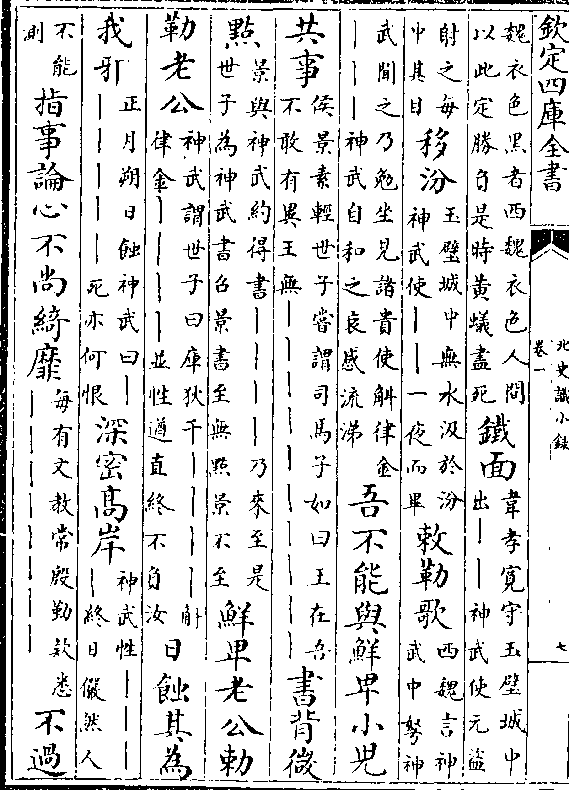 欽定四庫全書
北史識小錄
卷一
七
魏衣色黑者西魏衣色人間
以此定勝負是時黃蟻盡死
鐵面
韋孝寬守玉壁城中
出｜｜神武使元盜
射之每
中其目
移汾
玉壁城中無水汲於汾
神武使｜｜一夜而畢
敕勒歌
西魏言神
武中弩神
武聞之乃勉坐見諸貴使斛律金
｜｜｜神武自和之哀感流涕
吾不能與鮮卑小兒
共事
侯景素輕世子嘗謂司馬子如曰王在吾
不敢有異王無｜｜｜｜｜｜｜｜｜
書背微
點
景與神武約得書｜｜｜｜乃來至是
世子為神武書召景書至無點景不至
鮮卑老公勅
勒老公
神武謂世子曰庫狄干｜｜｜｜斛
律金｜｜｜｜｜並性遒直終不負汝
日蝕其為
我邪
正月朔日蝕神武曰｜｜
｜｜｜｜死亦何恨
深密高岸
神武性｜｜｜
｜終日儼然人
不能
測
指事論心不尚綺靡
每有文教常殷勤欵悉
｜｜｜｜｜｜｜｜
不過